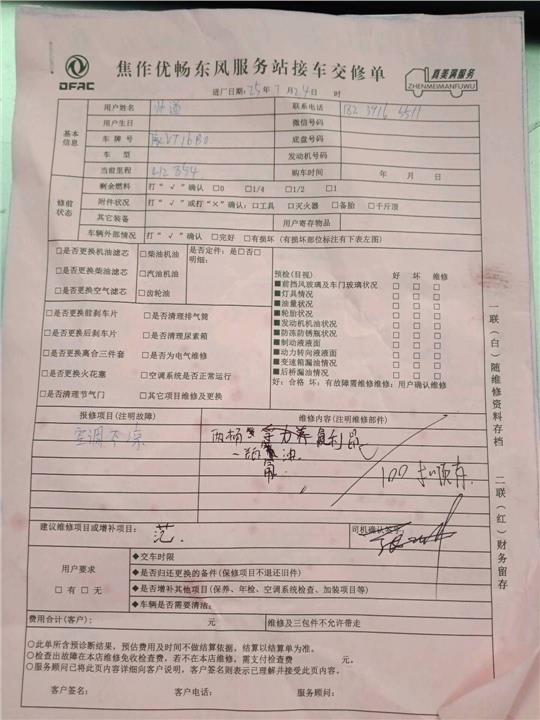 DFAC
焦作优畅东风服务站接车交修单
真美满服务
ZHENMEIMANFUWU
进厂日期:25年7月24日 时
基本信息
用户姓名 联系电话
用户生日 微信号码
车牌号 底盘号码
车型 发动机号码
当前里程 购车时间 年 月 日
修前状态
剩余燃料 打“√”确认 □0 □1/4 □1/2 □1
附件状况 打“√”或打“×”确认:□工具 □灭火器 □备胎 □千斤顶
其它装备 用户寄存物品
车辆外部情况 打“√”确认 □完好 □有损坏(有损坏部位标注有下表左图)
□是否更换机油滤芯 □柴油机油 是否定件:是□否□
明细:
□是否更换柴油滤芯 □汽油机油
□是否更换空气滤芯 □齿轮油
预检(目视) 好 坏 维修
■前挡风玻璃及车门玻璃状况 □ □ □
■灯具情况 □ □ □
■油量状况 □ □ □
■轮胎状况 □ □ □
■发动机机油状况 □ □ □
■防冻防锈瓶状况 □ □ □
■制动液液面 □ □ □
■动力转向液液面 □ □ □
■变速箱漏油情况 □ □ □
■后桥漏油情况 □ □ □
好:合格 坏:有故障需维修维修:用户确认维修
□是否更换前刹车片 □是否清理排气筒
□是否更换后刹车片 □是否清理尿素箱
□是否更换离合三件套 □是否为电气维修
□是否更换火花塞 □空调系统是否正常运行
□是否清理节气门 □其它项目维修及更换
报修项目(注明故障) 维修内容(注明维修部件)
空调不凉
建议维修项目或增补项目:
司机确认签字:
用户要求
□有 □无
◆交车时限
◆是否归还更换的备件(保修项目不退还旧件)
◆是否增补其他项目(保养、年检、空调系统检查、加装项目等)
◆车辆是否需要清洁:
费用合计(客户): 元 维修及三包件不允许带走
○此单所含预诊断结果,预估费用及时间不做结算依据,结算以结算单为准。
○检查出故障在本店维修免收检查费,若不在本店维修,需支付检查费 元。
○服务顾问已将此页内容详细向客户说明,客户签名则表示已理解并接受此页内容。
客户签名: 客户电话: 服务顾问:
一联(白)随维修资料存档 二联(红)财务留存